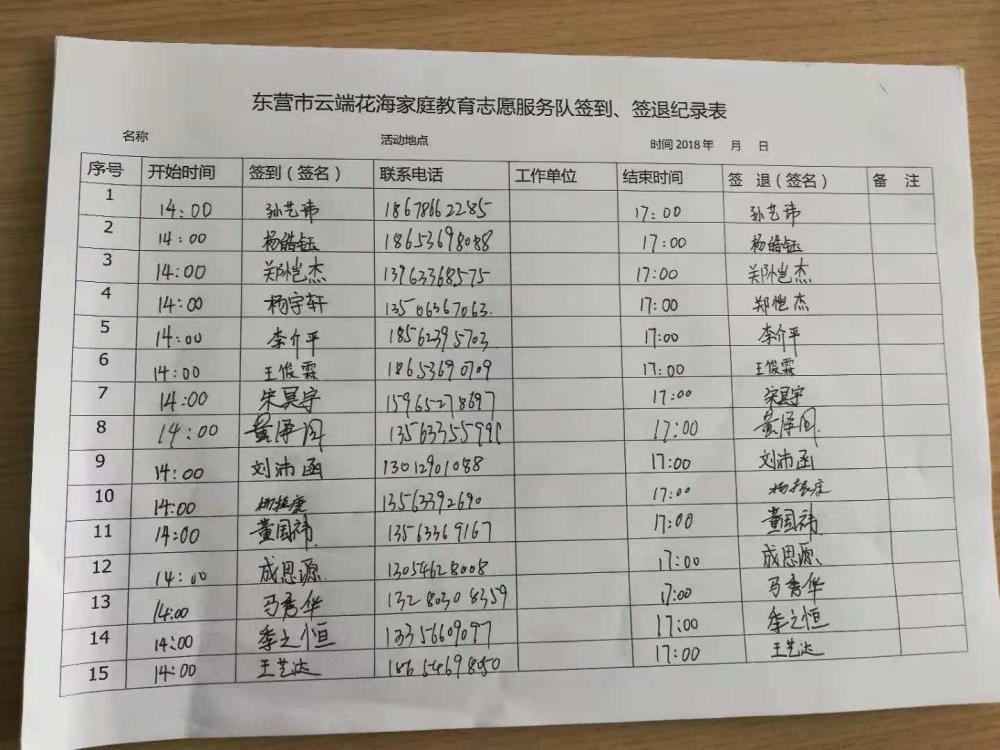 东营市云端花海家庭教育志愿服务队签到、签退纪录表
名称 活动地点 时间 2018 年 月 日
序号 开始时间 签到（签名） 联系电话 工作单位 结束时间 签 退（签名） 备 注
1 14:00 孙艺玮 18678662285 17:00 孙艺玮
2 14:00 杨皓钰 18653698088 17:00 杨皓钰
3 14:00 郑恺杰 13963368575 17:00 郑恺杰
4 14:00 杨宇轩 13506367063. 17:00 郑恺杰
5 14:00 李介平 18562395703 17:00 李介平
6 14:00 王俊霖 18653690709 17:00 王俊霖
7 14:00 宋昊宇 15965278697 17:00 宋昊宇
8 14:00 17:00
9 14:00 刘沛函 13012901088 17:00 刘沛函
10 14:00 13563392690 17:00
11 14:00 董国祎 13563369167 17:00 董国祎
12 14:00 成思源 13054628008 17:00 成思源
13 14:00 马秀华 13280308359 17:00 马秀华
14 14:00 季之恒 13356609097 17:00 季之恒
15 14:00 王艺达 18654698050 17:00 王艺达